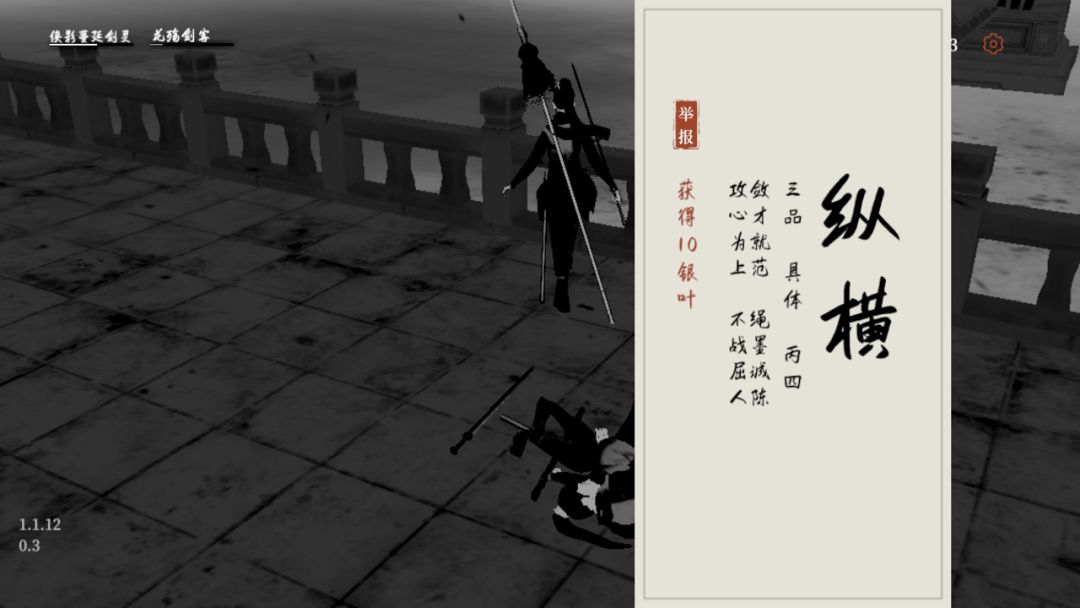 侠影蔓延剑灵 龙殇剑客
3
纵横
三品 具体 丙四
敛才就范 绳墨诚陈
攻心为上 不战屈人
举报
获得10银叶
1.1.12
0.3